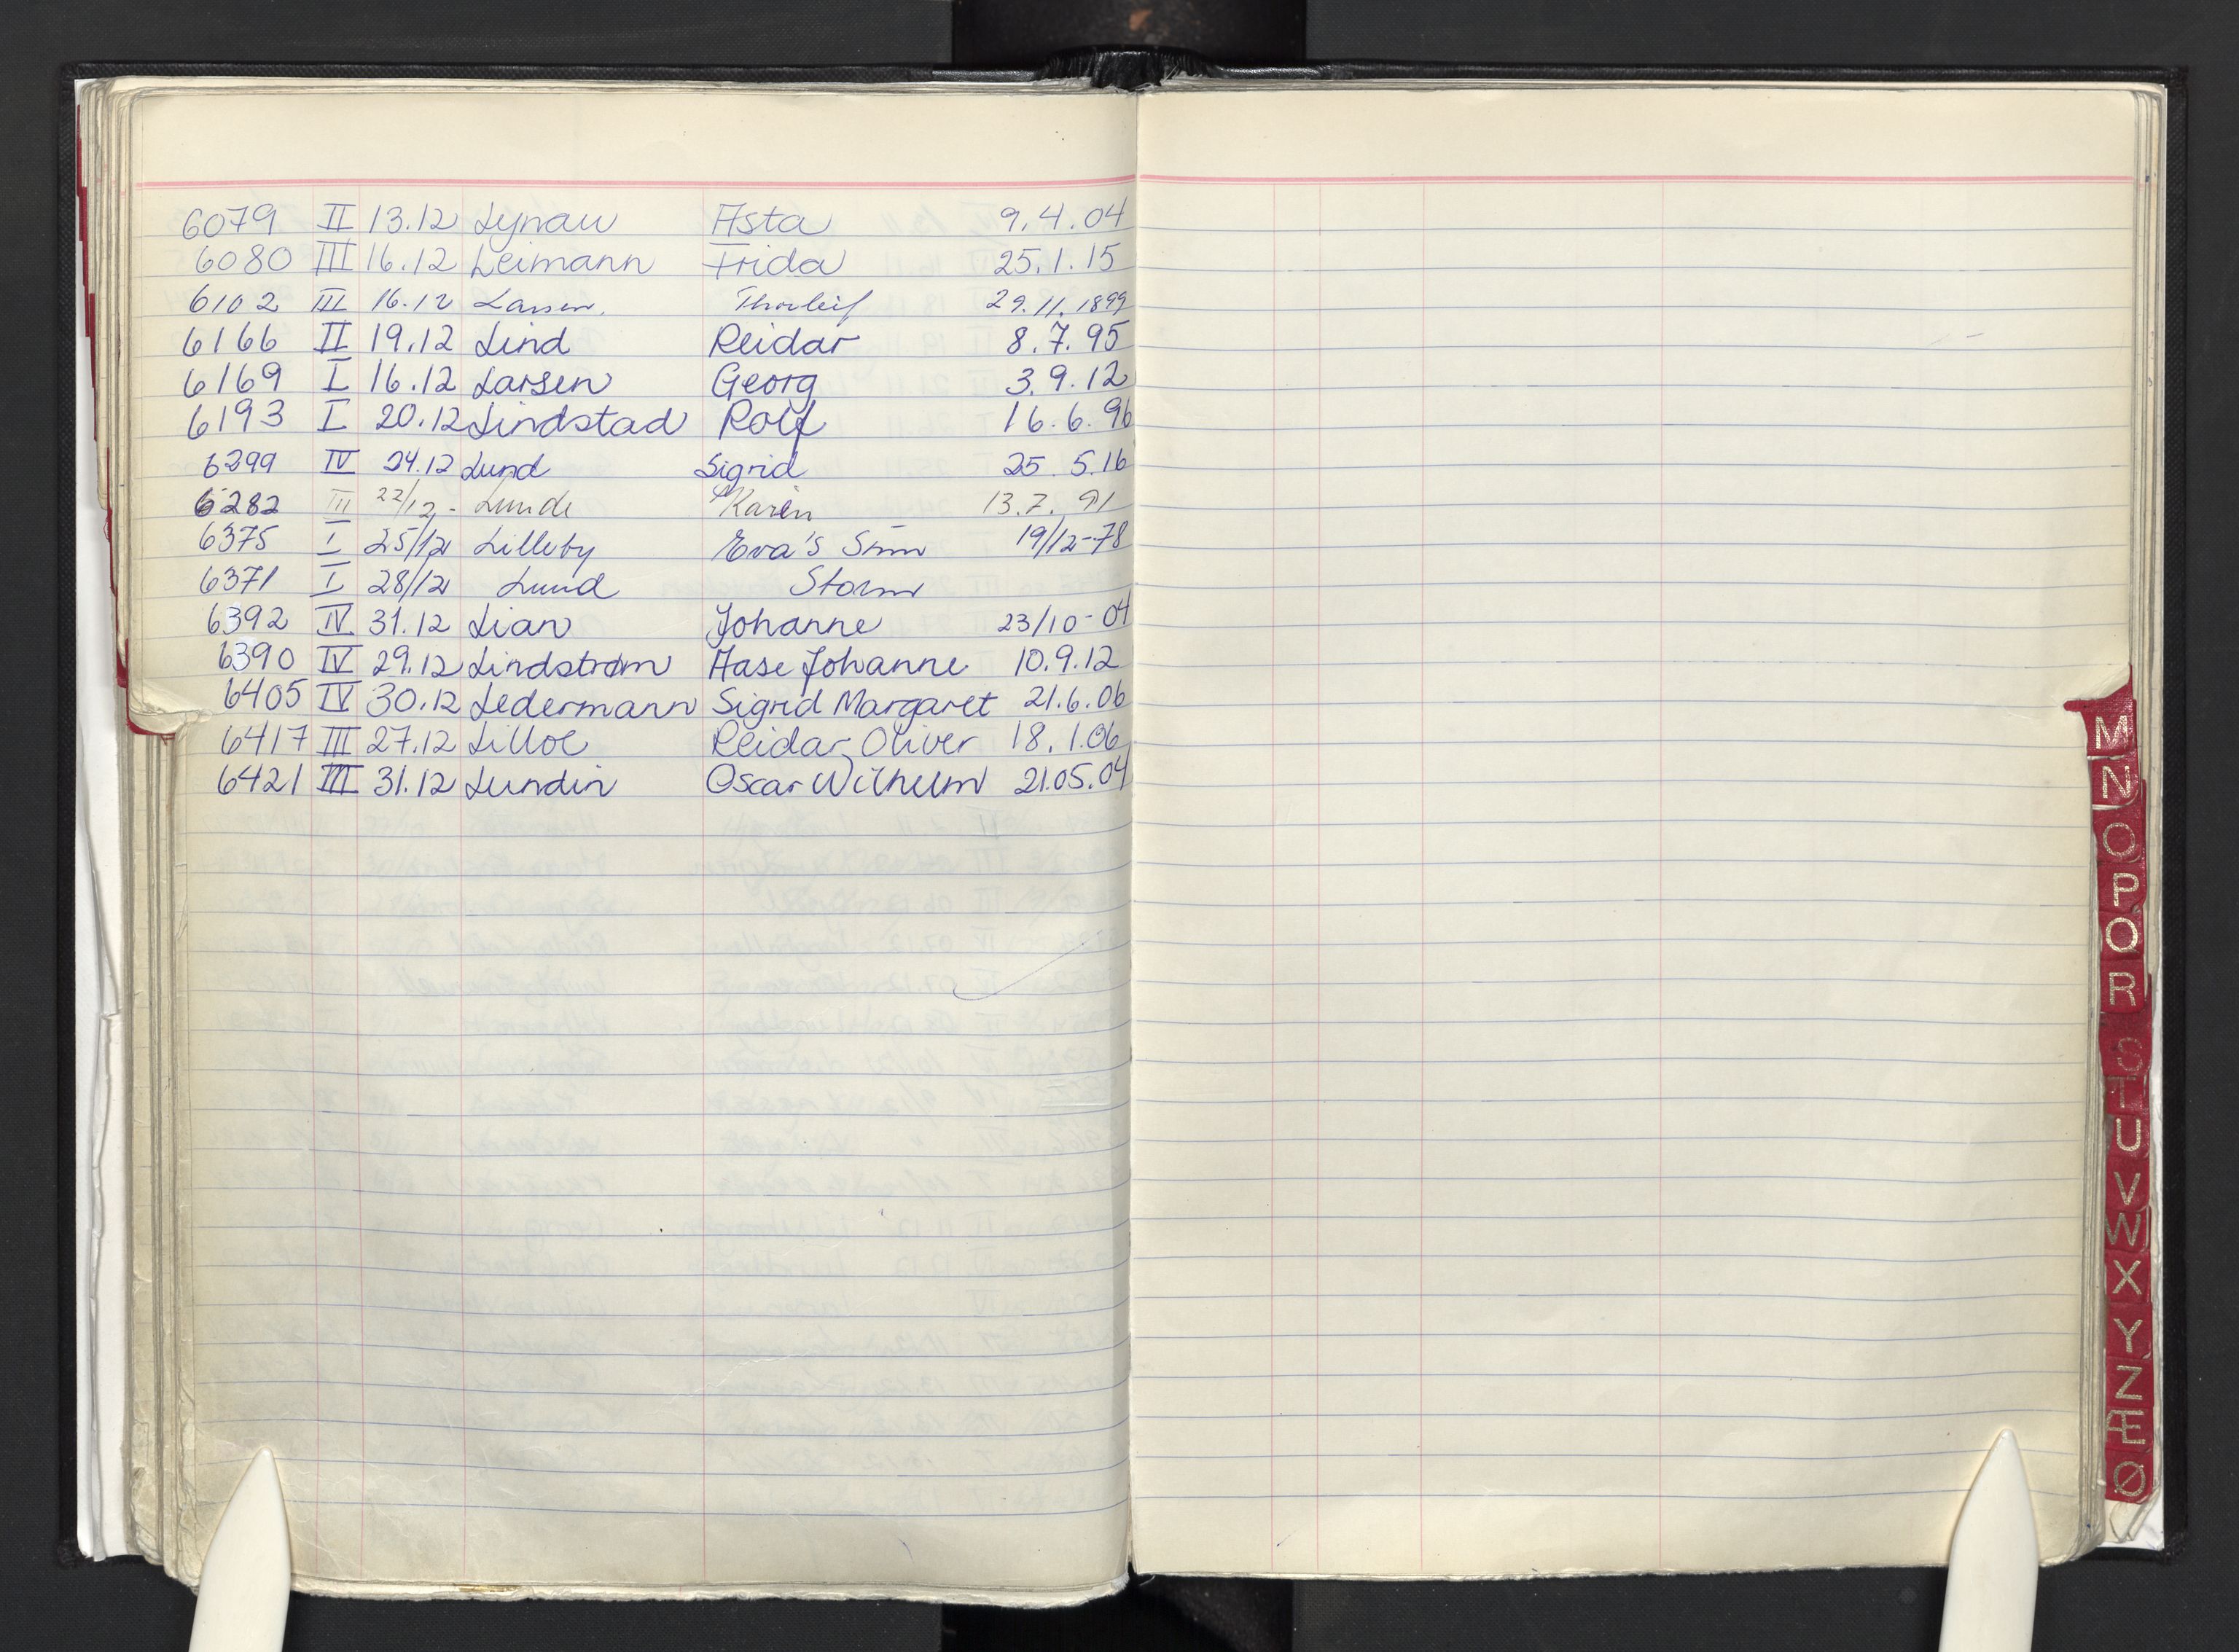 6079 II 13.12 Lynau Asta 9.4.04
6080 III 16.12 Leimann Frida 25.1.15
6102 III 16.12 Larsen. Thorleif 29.11.1899
6166 II 19.12 Lind Reidar 8.7.95
6169 I 16.12 Larsen Georg 3.9.12
6193 I 20.12 Lindstad Rolf 16.6.96
6299 IV 24.12 Lund Sigrid 25.5.16
6282 III 22/12- Lunde Karen 13.7.91
6375 I 25/12 Lilleby Eva's Sønn 19/12-78
6371 I 28/12 Lund Storm
6392 IV 31.12 Lian Johanne 23/10-04
6390 IV 29.12 Lindstrøm Aase Johanne 10.9.12
6405 IV 30.12 Ledermann Sigrid Margaret 21.6.06
6417 III 27.12 Lilloe Reidar Oliver 18.1.06
6421 III 31.12 Lundin Oscar Wilhelm 21.05.04
M
N
O
P
Q
R
S
T
U
V
W
X
Y
Z
Æ
Ø